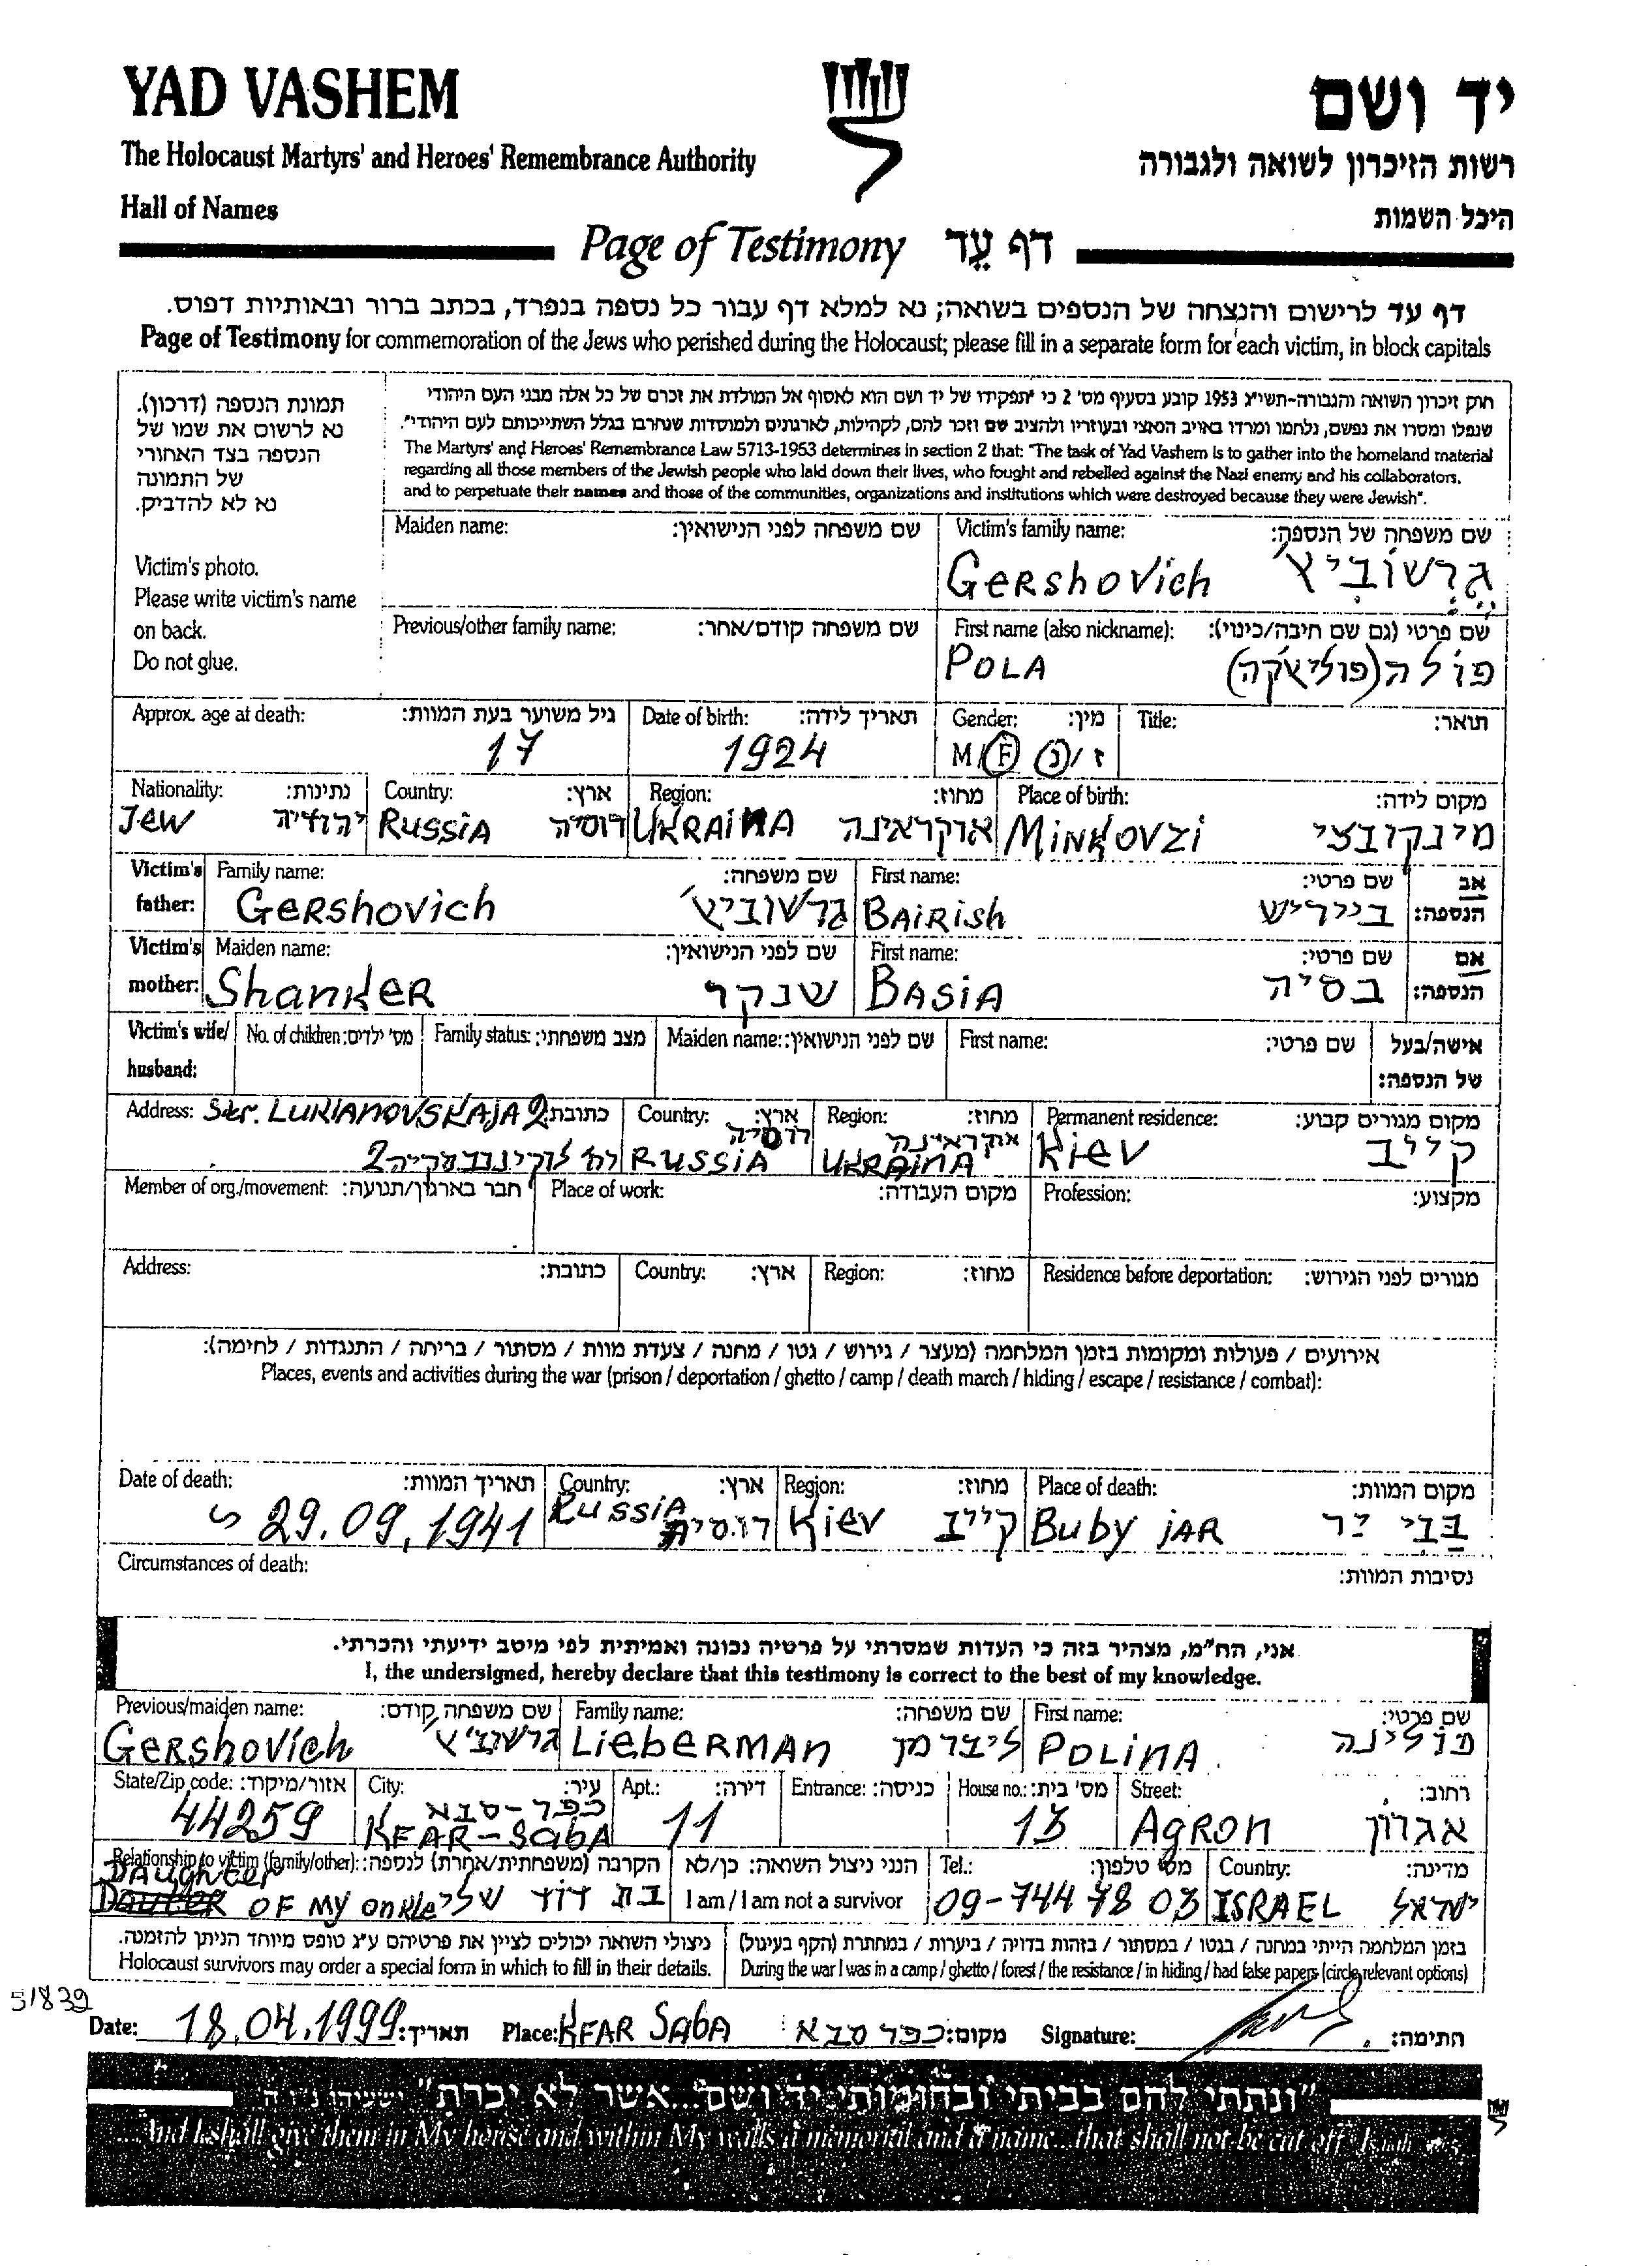 YAD VASHEM
יד ושם
The Holocaust Martyrs' and Heroes' Remembrance Authority
רשות הזיכרון לשואה ולגבורה
Hall of Names
היכל השמות
Page of Testimony דף עֵד
דף עד לרישום והנצחה של הנספים בשואה; נא למלא דף עבור כל נספה בנפרד, בכתב ברור ובאותיות דפוס.
Page of Testimony for commemoration of the Jews who perished during the Holocaust; please fill in a separate form for each victim, in block capitals
תמונת הנספה (דרכון).
נא לרשום את שמו של
הנספה בצד האחורי
של התמונה
נא לא להדביק.
Victim's photo.
Please write victim's name
on back.
Do not glue.
חוק זיכרון השואה והגבורה-תשי"ג 1953 קובע בסעיף מס' 2 כי "תפקידו של יד ושם הוא לאסוף אל המולדת את זכרם של כל אלה מבני העם היהודי
שנפלו ומסרו את נפשם, נלחמו ומרדו באויב הנאצי ובעוזריו ולהציב שם וזכר להם, לקהילות, לארגונים ולמוסדות שנחרבו בגלל השתייכותם לעם היהודי".
The Martyrs' and Heroes' Remembrance Law 5713-1953 determines in section 2 that: "The task of Yad Vashem is to gather into the homeland material
regarding all those members of the Jewish people who laid down their lives, who fought and rebelled against the Nazi enemy and his collaborators,
and to perpetuate their names and those of the communities, organizations and institutions which were destroyed because they were Jewish".
Maiden name: שם משפחה לפני הנישואין: Victim's family name: שם משפחה של הנספה:
Gershovich גרשוביץ'
Previous/other family name: שם משפחה קודם/אחר: First name (also nickname): שם פרטי (גם שם חיבה/כינוי):
POLA פולה (פוליאקה)
Approx. age at death: גיל משוער בעת המוות: Date of birth: תאריך לידה: Gender: מין: Title: תואר:
17 1924 M/F נ/ז
Nationality: נתינות: Country: ארץ: Region: מחוז: Place of birth: מקום לידה:
Jew יהודיה Russia רוסיה UKRAINA אוקראינה MINKOVZI מינקובצי
Victim's father: Family name: שם משפחה: First name: שם פרטי: אב הנספה:
Gershovich גרשוביץ' BAIRISH ביריש
Victim's mother: Maiden name: שם לפני הנישואין: First name: שם פרטי: אם הנספה:
Shanker שנקר BASIA בסיה
Victim's wife/ husband: No. of children: מס' ילדים: Family status: מצב משפחתי: Maiden name: שם לפני הנישואין: First name: שם פרטי: אישה/בעל של הנספה:
Address: Str. LUKIANOVSKAJA 2 כתובת: Country: ארץ: Region: מחוז: Permanent residence: מקום מגורים קבוע:
רח' לוקינובסקיה 2 RUSSIA רוסיה UKRAINA אוקראינה Kiev קייב
Member of org./movement: חבר בארגון/תנועה: Place of work: מקום העבודה: Profession: מקצוע:
Address: כתובת: Country: ארץ: Region: מחוז: Residence before deportation: מגורים לפני הגירוש:
אירועים / פעולות ומקומות בזמן המלחמה (מעצר / גירוש / גטו / מחנה / צעדת מוות / מסתור / בריחה / התנגדות / לחימה):
Places, events and activities during the war (prison / deportation / ghetto / camp / death march / hiding / escape / resistance / combat):
Date of death: תאריך המוות: Country: ארץ: Region: מחוז: Place of death: מקום המוות:
29.09.1941 Russia רוסיה Kiev קייב Buby jAR בבי יר
Circumstances of death: נסיבות המוות:
אני, הח"מ, מצהיר בזה כי העדות שמסרתי על פרטיה נכונה ואמיתית לפי מיטב ידיעתי והכרתי.
I, the undersigned, hereby declare that this testimony is correct to the best of my knowledge.
Previous/maiden name: שם משפחה קודם: Family name: שם משפחה: First name: שם פרטי:
Gershovich גרשוביץ' Lieberman ליברמן POLINA פולינה
State/Zip code: אזור/מיקוד: City: עיר: Apt.: דירה: Entrance: כניסה: House no.: מס' בית: Street: רחוב:
44259 KFAR-SabA כפר-סבא 11 13 AGRON אגרון
Relationship to victim (family/other): הקרבה (משפחתית/אחרת) לנספה: הנני ניצול השואה: כן/לא Tel.: מס' טלפון: Country: מדינה:
Daughter OF MY onkle בת דוד שלי I am / I am not a survivor 09-744 78 03 ISRAEL ישראל
ניצולי השואה יכולים לציין את פרטיהם ע"ג טופס מיוחד הניתן להזמנה. בזמן המלחמה הייתי במחנה / בגטו / במסתור / בזהות בדויה / ביערות / במחתרת (הקף בעיגול)
Holocaust survivors may order a special form in which to fill in their details. During the war I was in a camp / ghetto / forest / the resistance / in hiding / had false papers (circle relevant options)
51839
Date: 18.04.1999 תאריך: Place: KFAR SabA כפר סבא מקום: Signature: חתימה:
"ונתתי להם בביתי ובחומותי יד ושם...אשר לא יכרת" ישעיהו נ"ו ה
...And I shall give them in My house and within My walls a memorial and a name...that shall not be cut off. Isaiah